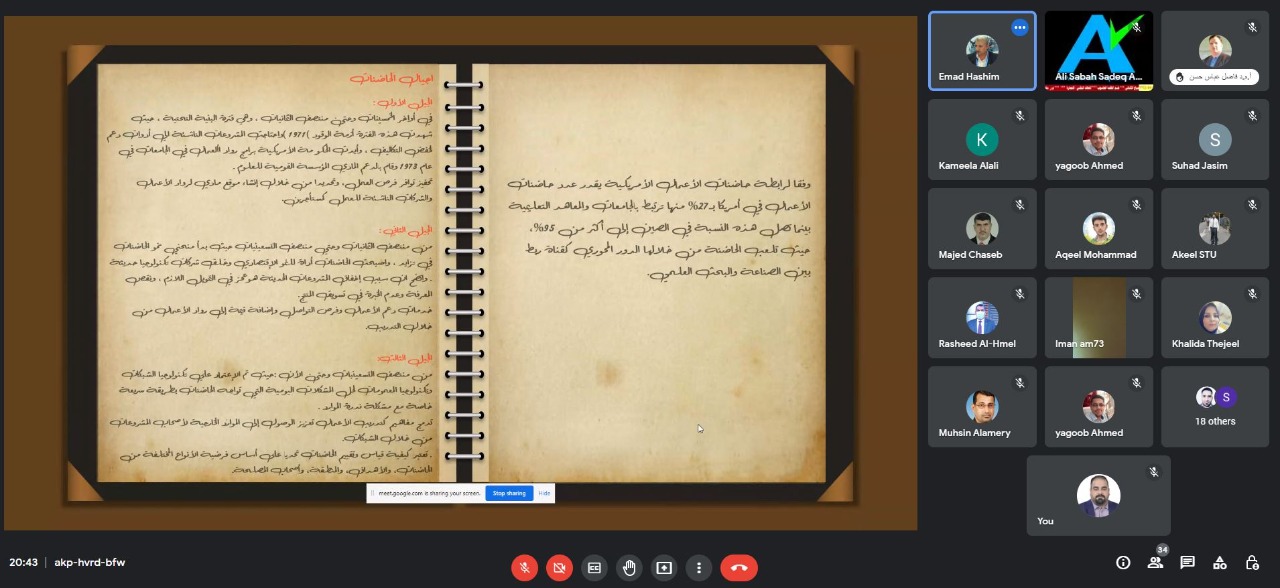 أجيال الحاضنات
الجيل الأول :
في أواخر الخمسينات وحتى منتصف الثمانينات ، وهي فترة البنية التحتية ، حيث
شهدت هذه الفترة أزمة الوقود )1971 (واحتاجت الشروعات الناشئة إلى أدوات دعم
لخفض التكاليف ، وأيدت الحكومة الأمريكية برامج رواد الأعمال في الجامعات في
عام 1973 وقام بالدعم المادي المؤسسة القومية للعلوم .
تحفيز توافر فرص العمل، وتحديدا من خلال إنشاء موقع مادي لرواد الأعمال
والشركات الناشئة للعمل كمستأجرين.
الجيل الثاني :
من منتصف الثمانينات وحتى منتصف التسعينيات حيث بدأ منحنى نمو الحاضنات
في تزايد ، وأصبحت الحاضنات أداة للنمو الإقتصادي وخلق شركات تكنولوجيا حديثة
. واتضح أن سبب إخفاق الشروعات الحديثة هو عجز في التمويل اللازم ، ونقص
المعرفة وعدم الخبرة في تسويق المنتج.
خدمات دعم الأعمال وفرص التواصل وإضافة قيمة إلى رواد الأعمال من
خلال التدريب.
الجيل الثالث:
من منتصف التسعينيات وحتى الآن :حيث تم الإعتماد على تكنولوجيا الشبكات
وتكنولوجيا المعلومات لحل المشكلات اليومية التي تواجه الحاضنات بطريقة سريعة
خاصة مع مشكلة ندرة الموارد .
تدمج مفاهيم كتدريب الأعمال تعزيز الوصول إلى الموارد الخارجية لأصحاب المشروعات
من خلال الشبكات.
. تعتبر كيفية قياس وتقييم الحاضنات تحديا على أساس فرضية الأنواع المختلفة من
الحاضنات، والأهداف، والمنطقة، وأصحاب المصلحة.
وفقا لرابطة حاضنات الأعمال الأمريكية يقدر عدد حاضنات
الأعمال في أمريكا بـ27% منها ترتبط بالجامعات والمعاهد التعليمية
بينما تصل هذه النسبة في الصين إلى أكثر من 95%،
حيث تلعب الحاضنة من خلالها الدور المحوري كقناة ربط
بين الصناعة والبحث العلمي.
meet.google.com is sharing your screen. Stop sharing Hide
Emad Hashim
Ali Sabah Sadeq A...
أ.م.د فاضل عباس حسن
K
Kameela Alali
yagoob Ahmed
S
Suhad Jasim
Majed Chaseb
Aqeel Mohammad
Akeel STU
Rasheed Al-Hmel
Iman am73
Khalida Thejeel
Muhsin Alamery
yagoob Ahmed
S
18 others
You
20:43 | akp-hvrd-bfw
34